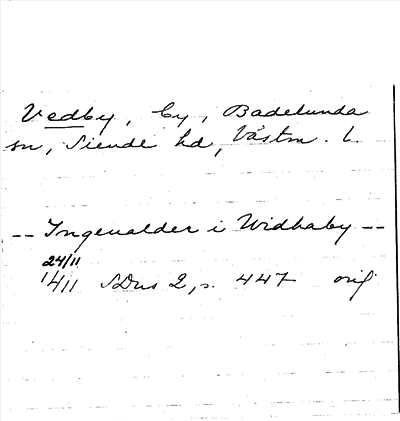 Vedby, by, Badelunda
sn, Siende hd, Västm. l.
-- Ingeualder i Widhaby --
24/11
1411 SDns 2, s. 447 orig